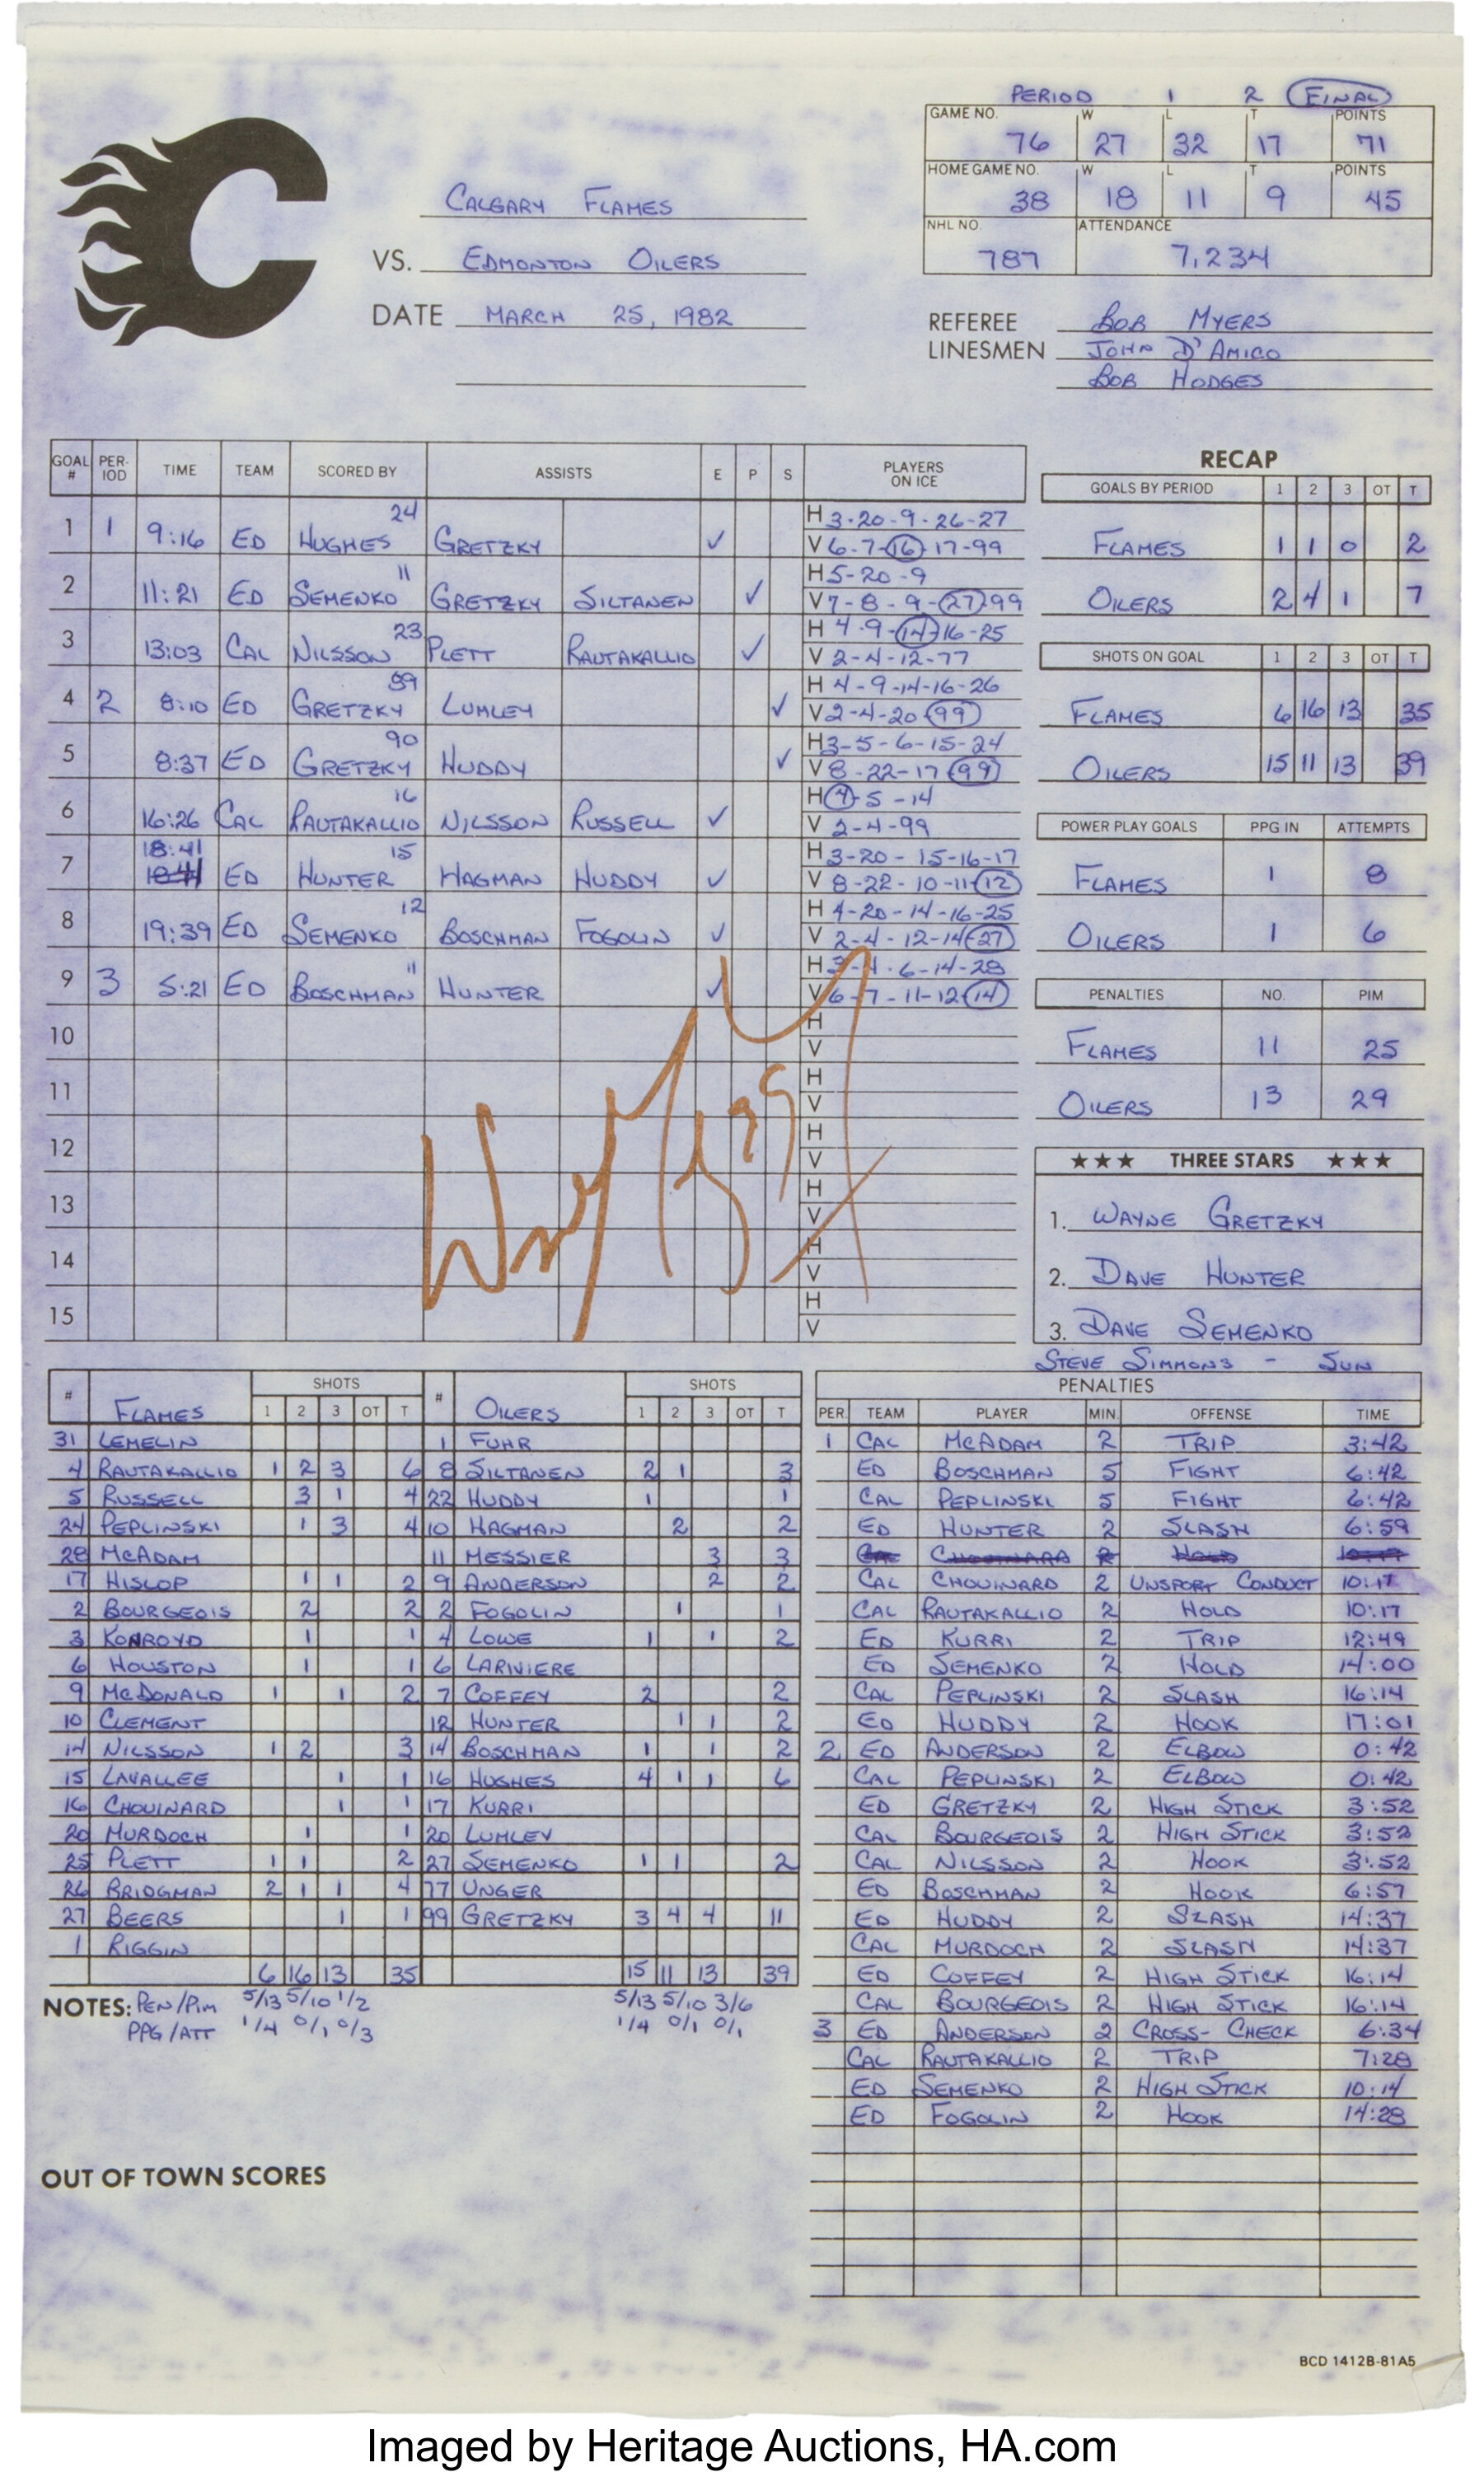 PERIOD 1 2 FINAL
GAME NO. W L T POINTS
76 27 32 17 71
HOME GAME NO. W L T POINTS
38 18 11 9 45
NHL NO. ATTENDANCE
787 7,234
C
CALGARY FLAMES
VS. EDMONTON OILERS
DATE MARCH 25, 1982
REFEREE BOB MYERS
LINESMEN JOHN D'AMICO
BOB HODGES
GOAL # PERIOD TIME TEAM SCORED BY ASSISTS E P S PLAYERS ON ICE
1 1 9:16 ED HUGHES 24 GRETZKY ✓ H 3-20-9-26-27
V 6-7-16-17-99
2 11:21 ED SEMENKO 11 GRETZKY SILTANEN ✓ H 5-20-9
V 7-8-9-27-99
3 13:03 CAL NILSSON 23 PLETT RAUTAKALLIO ✓ H 4-9-14-16-25
V 2-4-12-77
4 2 8:10 ED GRETZKY 89 LUMLEY ✓ H 4-9-14-16-26
V 2-4-20-99
5 8:37 ED GRETZKY 90 HUDDY ✓ H 3-5-6-15-24
V 8-22-17-99
6 16:26 CAL RAUTAKALLIO 16 NILSSON RUSSELL ✓ H 4-5-14
V 2-4-99
7 18:41 ED HUNTER 15 HAGMAN HUDDY ✓ H 3-20-15-16-17
V 8-22-10-11-12
8 19:39 ED SEMENKO 12 BOSCHMAN FOGOLIN ✓ H 4-20-14-16-25
V 2-4-12-14-27
9 3 5:21 ED BOSCHMAN 11 HUNTER ✓ H 3-4-6-14-28
V 6-7-11-12-14
10 H
V
11 H
V
12 H
V
13 H
V
14 H
V
15 H
V
99
RECAP
GOALS BY PERIOD 1 2 3 OT T
FLAMES 1 1 0 2
OILERS 2 4 1 7
SHOTS ON GOAL 1 2 3 OT T
FLAMES 6 16 13 35
OILERS 15 11 13 39
POWER PLAY GOALS PPG IN ATTEMPTS
FLAMES 1 8
OILERS 1 6
PENALTIES NO. PIM
FLAMES 11 25
OILERS 13 29
★★★ THREE STARS ★★★
1. WAYNE GRETZKY
2. DAVE HUNTER
3. DAVE SEMENKO
STEVE SIMMONS - SUN
# FLAMES SHOTS 1 2 3 OT T # OILERS SHOTS 1 2 3 OT T
31 LEMELIN 1 FUHR
4 RAUTAKALLIO 1 2 3 6 8 SILTANEN 2 1 3
5 RUSSELL 3 1 4 22 HUDDY 1 1
24 PEPLINSKI 1 3 4 10 HAGMAN 2 2
28 MCADAM 11 MESSIER 3 3
17 HISLOP 1 1 2 9 ANDERSON 2 2
2 BOURGEOIS 2 2 2 FOGOLIN 1 1
3 KONROYD 1 1 4 LOWE 1 1 2
6 HOUSTON 1 1 6 LARIVIERE
9 MCDONALD 1 1 2 7 COFFEY 2 2
10 CLEMENT 12 HUNTER 1 1 2
14 NILSSON 1 2 3 14 BOSCHMAN 1 1 2
15 LAVALLEE 1 1 16 HUGHES 4 1 1 6
16 CHOUINARD 1 1 17 KURRI
20 MURDOCH 1 1 20 LUMLEY
25 PLETT 1 1 2 27 SEMENKO 1 1 2
26 BRIDGMAN 2 1 1 4 77 UNGER
27 BEERS 1 1 99 GRETZKY 3 4 4 11
1 RIGGIN
6 16 13 35 15 11 13 39
NOTES: PEN/PIM 5/13 5/10 1/2 5/13 5/10 3/6
PPG/ATT 1/4 0/1 0/3 1/4 0/1 0/1
PENALTIES
PER. TEAM PLAYER MIN. OFFENSE TIME
1 CAL MCADAM 2 TRIP 3:42
ED BOSCHMAN 5 FIGHT 6:42
CAL PEPLINSKI 5 FIGHT 6:42
ED HUNTER 2 SLASH 6:59
CAL CHOUINARD 2 UNSPORT CONDUCT 10:17
CAL RAUTAKALLIO 2 HOLD 10:17
ED KURRI 2 TRIP 12:49
ED SEMENKO 2 HOLD 14:00
CAL PEPLINSKI 2 SLASH 16:14
ED HUDDY 2 HOOK 17:01
2 ED ANDERSON 2 ELBOW 0:42
CAL PEPLINSKI 2 ELBOW 0:42
ED GRETZKY 2 HIGH STICK 3:52
CAL BOURGEOIS 2 HIGH STICK 3:52
CAL NILSSON 2 HOOK 3:52
ED BOSCHMAN 2 HOOK 6:57
ED HUDDY 2 SLASH 14:37
CAL MURDOCH 2 SLASH 14:37
ED COFFEY 2 HIGH STICK 16:14
CAL BOURGEOIS 2 HIGH STICK 16:14
3 ED ANDERSON 2 CROSS-CHECK 6:34
CAL RAUTAKALLIO 2 TRIP 7:28
ED SEMENKO 2 HIGH STICK 10:14
ED FOGOLIN 2 HOOK 14:28
OUT OF TOWN SCORES
BCD 1412B-81A5
Imaged by Heritage Auctions, HA.com